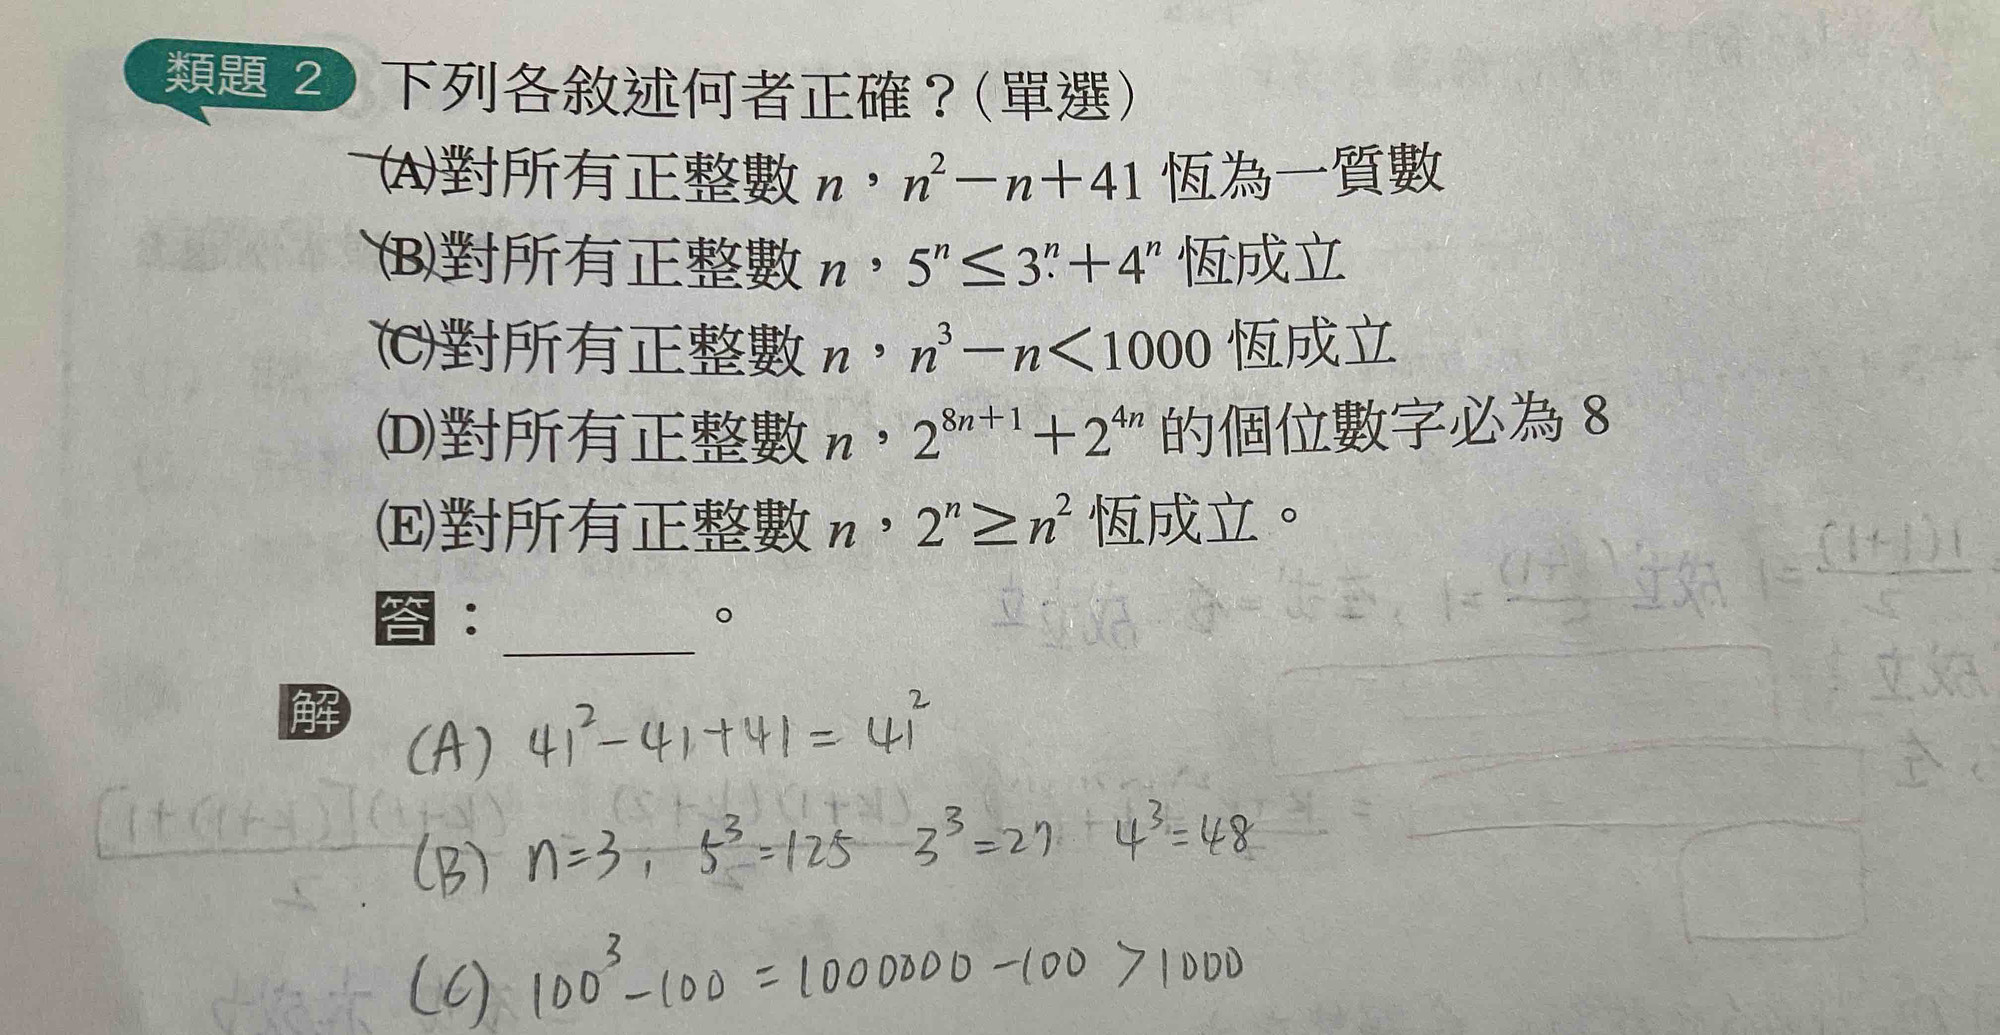 類題 2 下列各敘述何者正確？(單選)
(A)對所有正整數 n，n²－n＋41 恆為一質數
(B)對所有正整數 n，5ⁿ≤3ⁿ＋4ⁿ 恆成立
(C)對所有正整數 n，n³－n＜1000 恆成立
(D)對所有正整數 n，2⁸ⁿ⁺¹＋2⁴ⁿ 的個位數字必為 8
(E)對所有正整數 n，2ⁿ≥n² 恆成立。
答：______。
解
(A) 41²-41+41=41²
(B) n=3, 5³=125 3³=27 4³=48
(C) 100³-100=1000000-100>1000